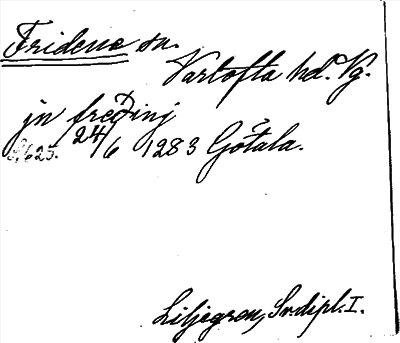 Fridene sn.
Vartofta hd. Vg.
jn freðinj
S. 625. 24/6 1283 Götala.
Liljegren, Sv. dipl. I.